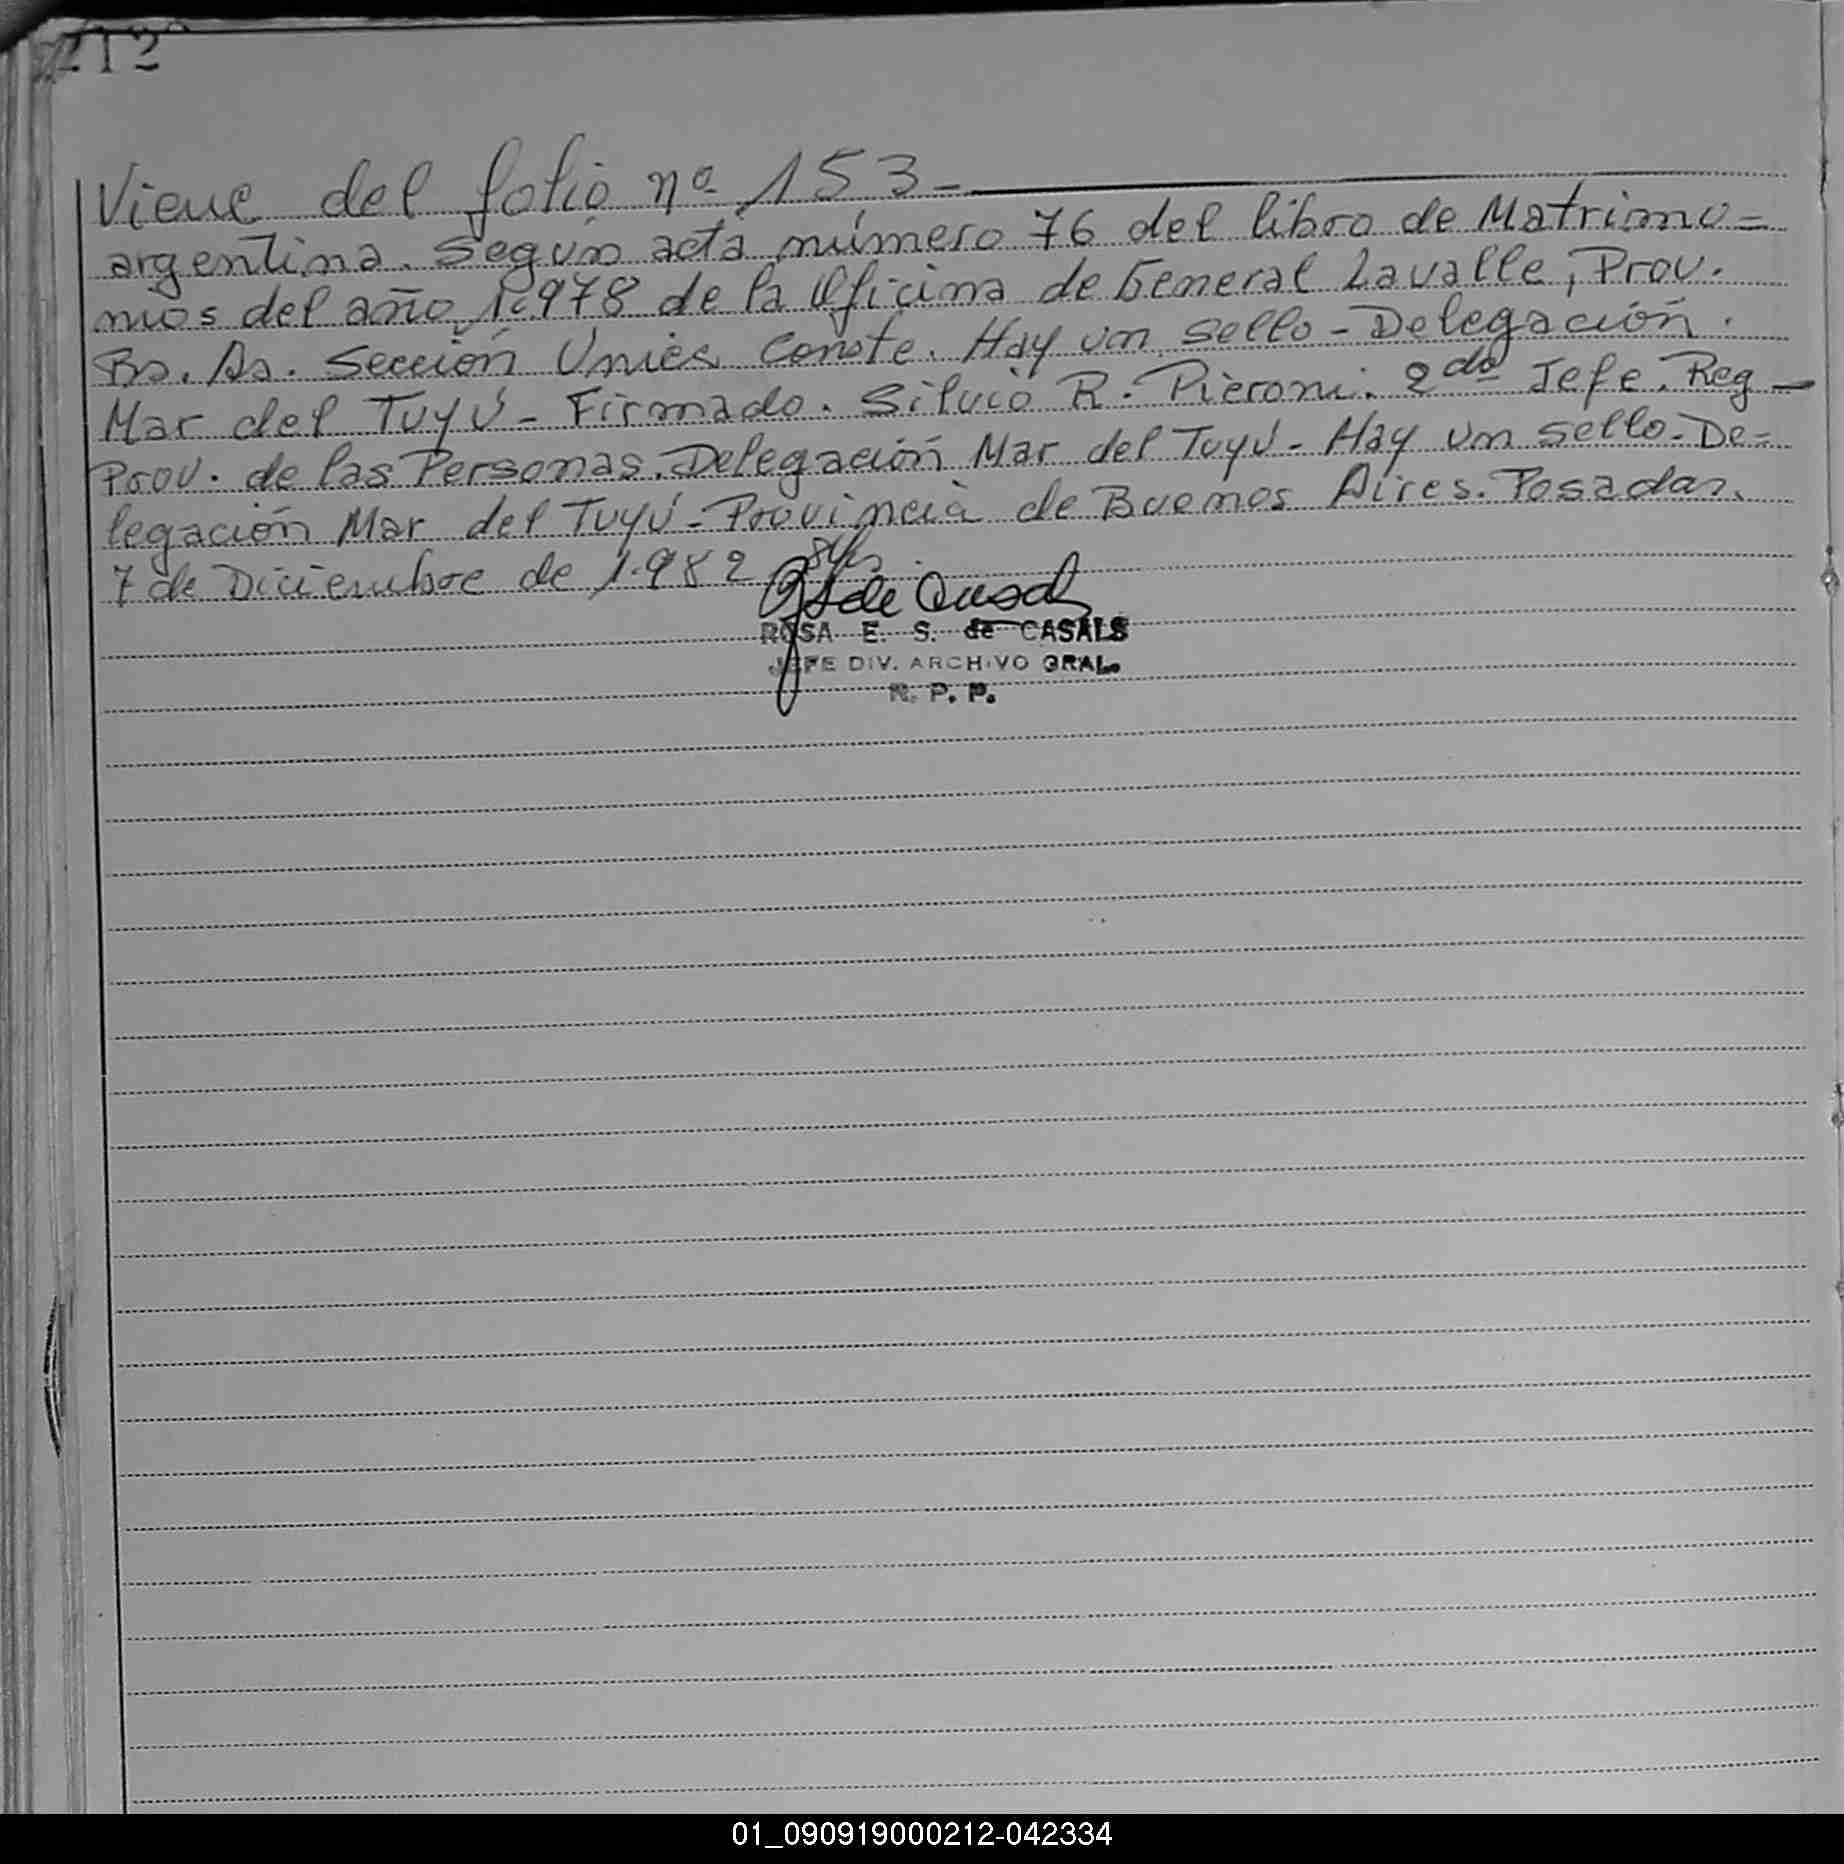 212
Viene del folio nº 153-
argentina. Según acta número 76 del libro de Matrimo=
nios del año 1.978 de la Oficina de General Lavalle, Prov.
Bs. As. Sección Única Conste. Hay un sello - Delegación.
Mar del Tuyú - Firmado. Silvio R. Pieroni. 2do Jefe. Reg -
Prov. de las Personas. Delegación Mar del Tuyú - Hay un sello - De=
legación Mar del Tuyú - Provincia de Buenos Aires. Posadas.
7 de Diciembre de 1.982
ROSA E. S. de CASALS
JEFE DIV. ARCHIVO GRAL.
R. P. P.
01_090919000212-042334